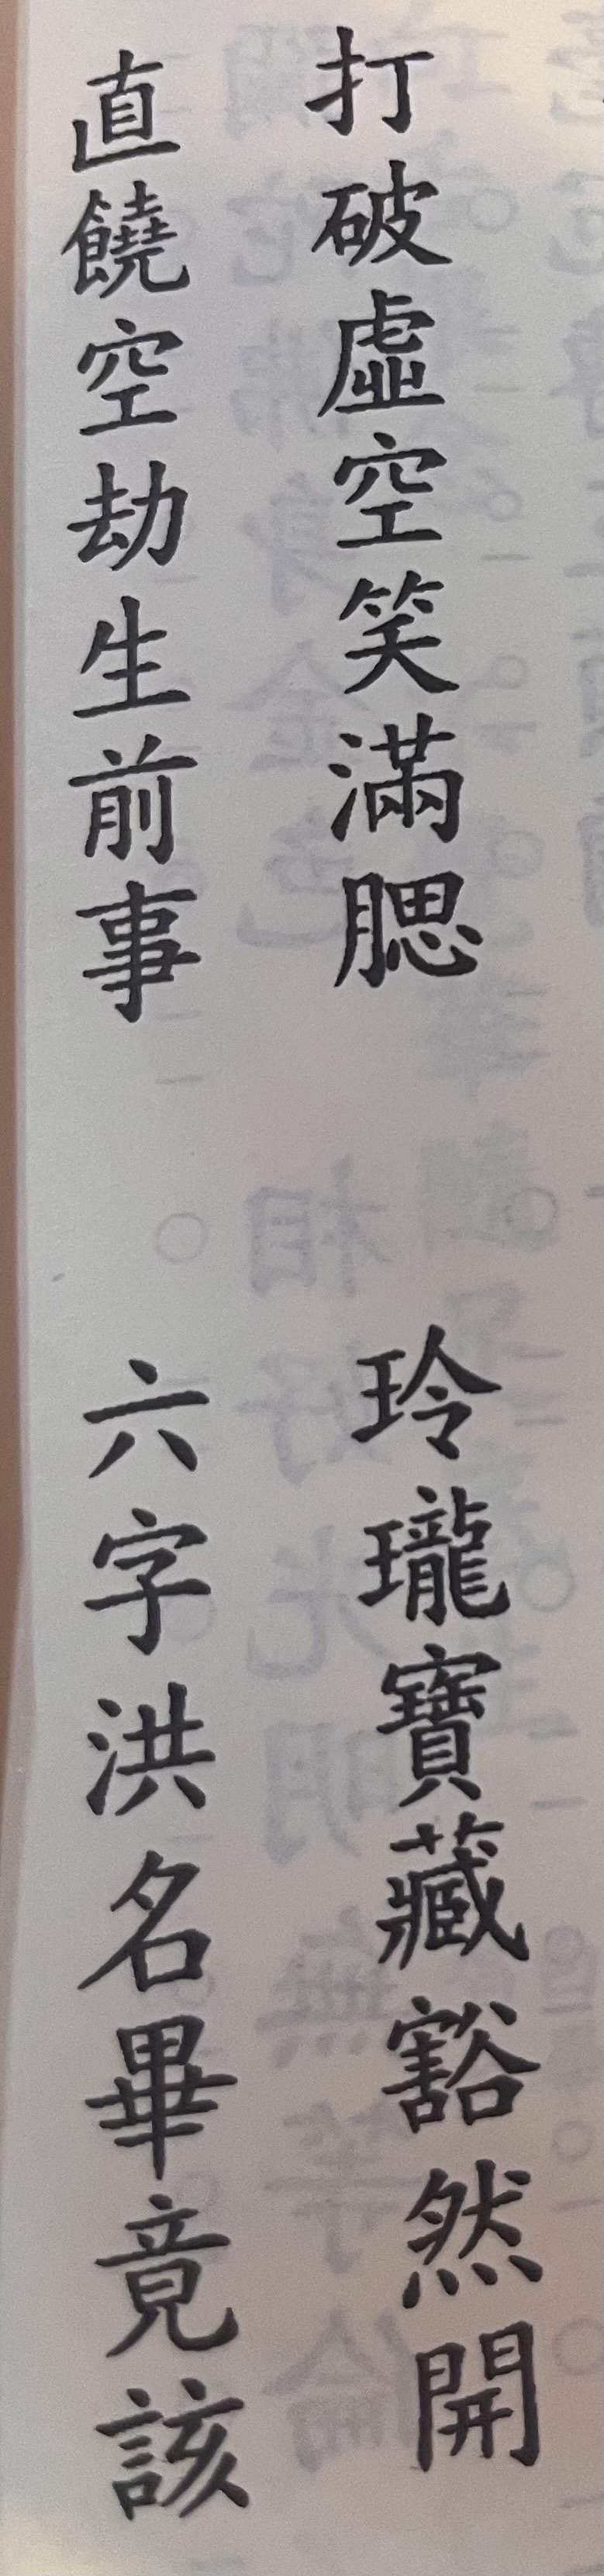 打破虛空笑滿腮 玲瓏寶藏豁然開
直饒空劫生前事 六字洪名畢竟該